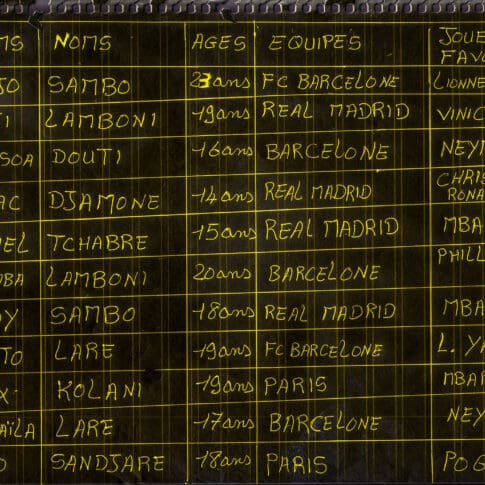 MS NOMS AGES EQUIPES JOUE
FAVO
JO SAMBO 23ans FC BARCELONE LIONNE
I LAMBONI 19ans REAL MADRID VINIC
SOA DOUTI 16ans BARCELONE NEYM
AC DJAMONE 14ans REAL MADRID CHRIS
RONA
EL TCHABRE 15ans REAL MADRID MBA
UBA LAMBONI 20ans BARCELONE PHILL
Y SAMBO 18ans REAL MADRID MBA
TO LARE 19ans FC BARCELONE L. YA
X KOLANI 19ans PARIS MBAR
AÏLA LARE 17ans BARCELONE NEY
O SANDJARE 18ans PARIS POG